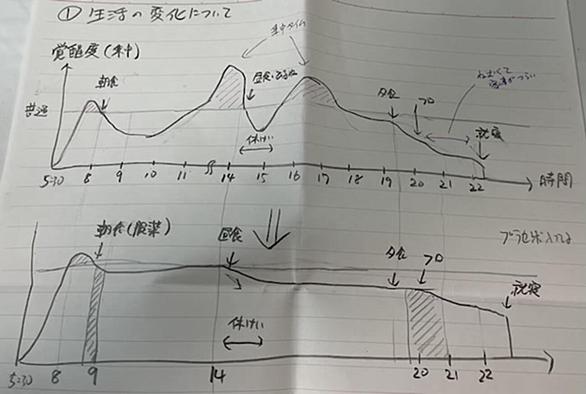 ① 生活の変化について
覚醒度(集中)
集中タイム
朝食
昼食
ねむくて
夕食
フロ
普通
休けい
就寝
5:30 8 9 10 11 14 15 16 17 18 19 20 21 22 時間
朝食(服薬)
昼食
夕食
フロ
就寝
休けい
5:30 8 9 14 20 21 22